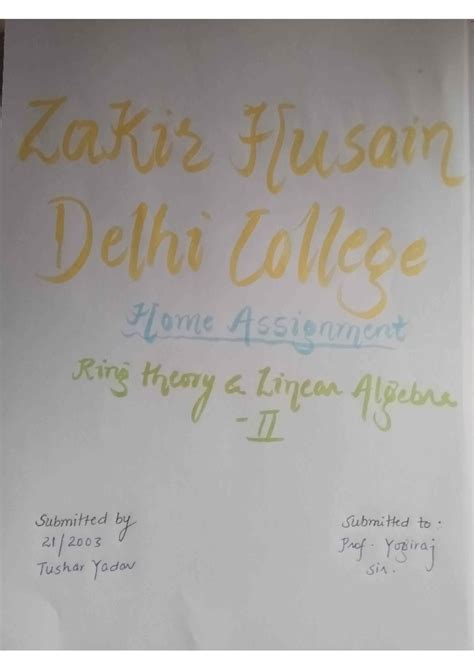 Zakir Husain
Delhi College
Home Assignment
Ring theory & Linear Algebra
- II
Submitted by
21/2003
Tushar Yadav
Submitted to :
Prof. Yogiraj
Sir.